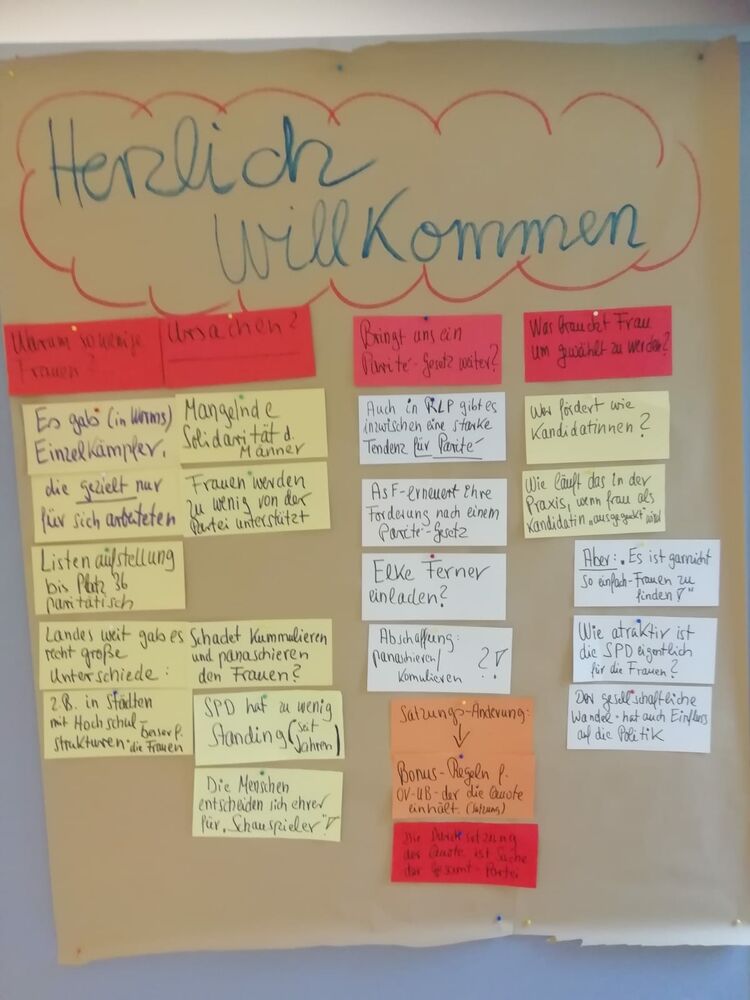 Herzlich
Willkommen
Warum so wenige
Frauen?
Es gab (in Worms)
Einzelkämpfer,
die gezielt nur
für sich arbeiteten
Listenaufstellung
bis Platz 36
paritätisch
Landesweit gab es
recht große
Unterschiede:
z.B. in Städten
mit Hochschul-
strukturen - besser f.
die Frauen
Ursachen?
Mangelnde
Solidarität d.
Männer
Frauen werden
zu wenig von der
Partei unterstützt
Schadet Kummulieren
und panaschieren
den Frauen?
SPD hat zu wenig
Standing (seit
Jahren)
Die Menschen
entscheiden sich ehrer
für „Schauspieler"!
Bringt uns ein
Parité-Gesetz weiter?
Auch in RLP gibt es
inzwischen eine starke
Tendenz für Parité
AsF-erneuert ihre
Forderung nach einem
Parité-Gesetz
Elke Ferner
einladen?
Abschaffung:
panaschieren/
komulieren ?!
Satzungs-Änderung:
Bonus-Regeln f.
OV-UB-der die Quote
einhält. (Satzung)
Die Durchsetzung
der Quote ist Sache
der Gesamt-Partei
Was braucht Frau
um gewählt zu werden?
Wer fördert wie
Kandidatinnen?
Wie läuft das in der
Praxis, wenn frau als
Kandidatin „ausgeguckt" wird
Aber: „Es ist garnicht
so einfach-Frauen zu
finden!"
Wie atraktiv ist
die SPD eigentlich
für die Frauen?
Der gesellschaftliche
Wandel-hat auch Einfluss
auf die Politik